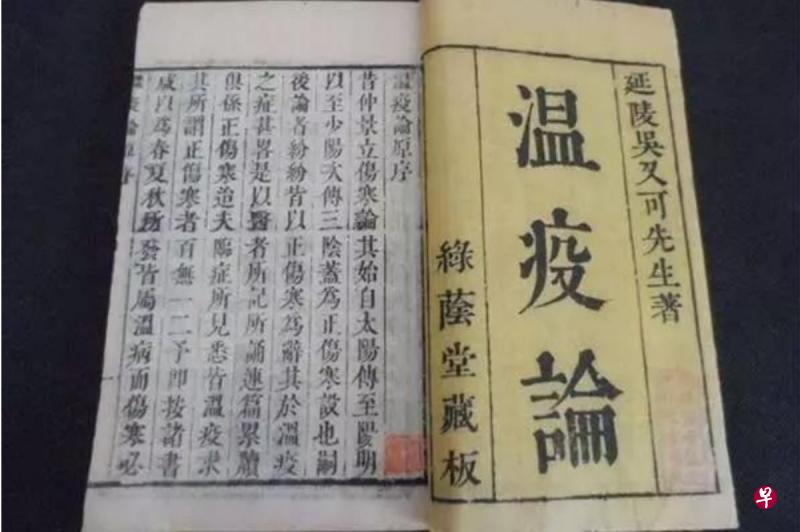 延陵吳又可先生著
温疫論
綠蔭堂藏板
溫疫論原序
昔仲景立傷寒論其始自太陽傳至陽明
以至少陽次傳三陰蓋為正傷寒設也嗣
後論者紛紛皆以正傷寒為辭其於溫疫
之症甚畧是以醫者所記所誦連篇累牘
俱係正傷寒迨夫臨症所見悉皆溫疫求
其所謂正傷寒者百無一二予即按諸書
咸以為春夏秋所發皆屬溫病而傷寒必
溫疫論 序
早